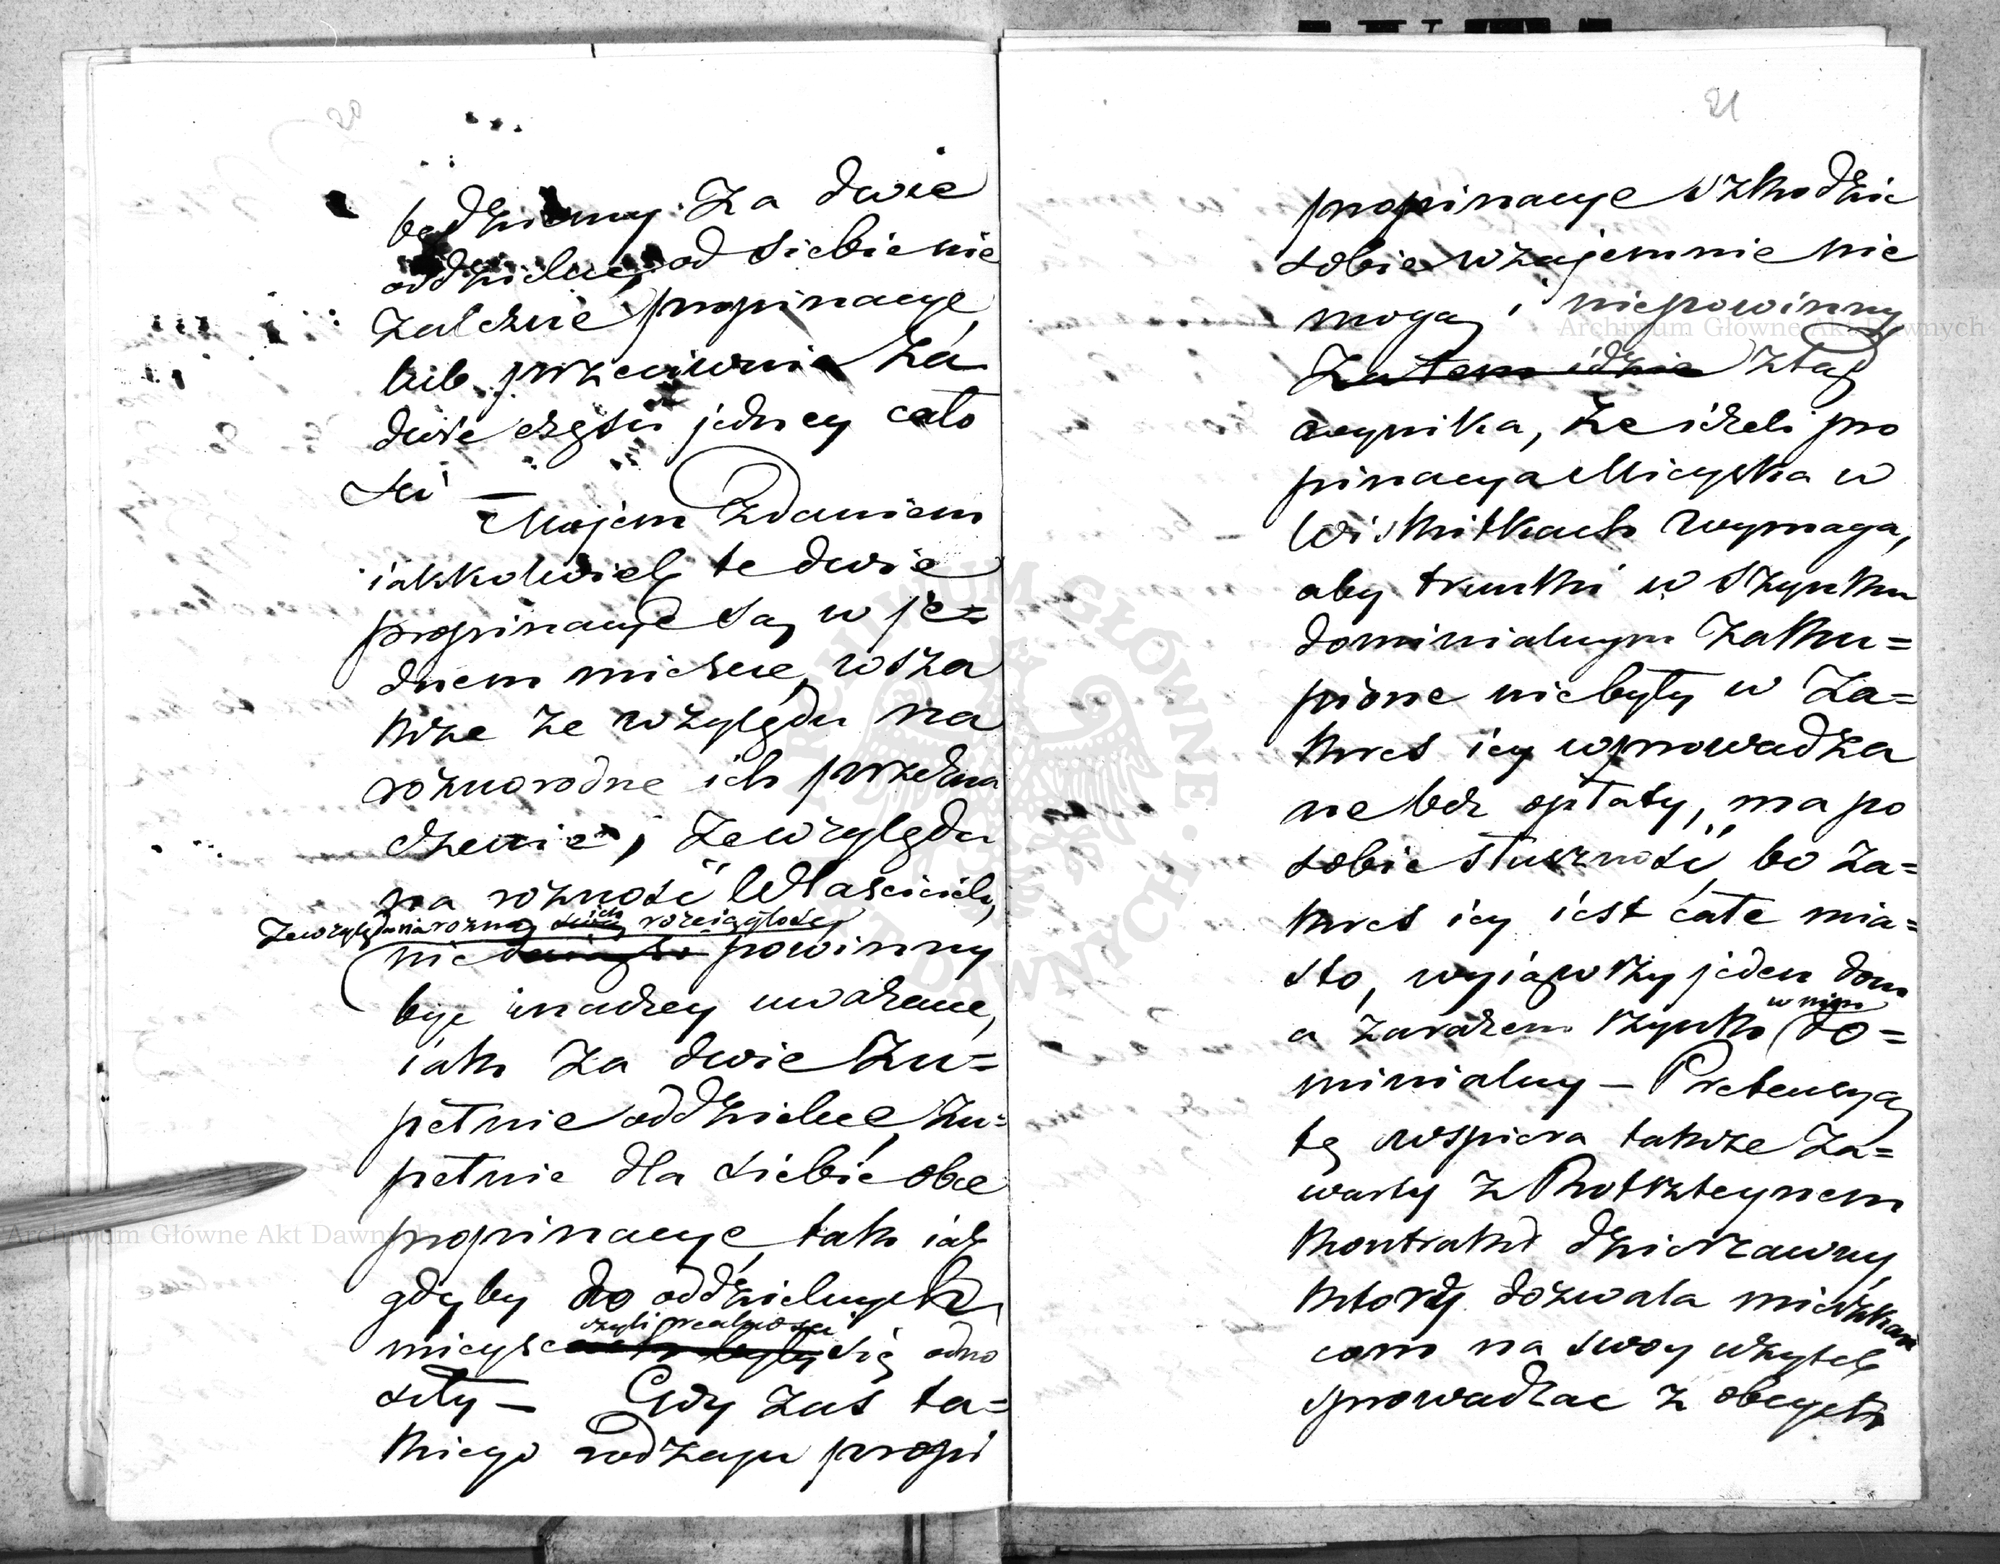 20
będziemy za dwie
oddzielne, od siebie nie
zależne propinacye,
lub przeciwnie za
dwie części jedney cało
ści —
Mojem zdaniem
iakkolwiek te dwie
propinacye są w je=
dnem mieście, wsza
kże ze względu na
różnorodne ich
ze względu
na różność Właścicieli,
ze względu na rozciągłości
nie powinny
być inaczey uważane,
iak za dwie zu=
pełnie oddzielne, zu=
pełnie dla siebie obce
propinacye, tak iak
gdyby do oddzielnych
czyli
mieysc się odno
siły — Gdy zaś ta=
kiego rodzaju propi
21
propinacye szkodzić
sobie wzajemnie nie
mogą i niepowinny
Zatem idzie ztąd
wynika, że ieżeli pro
pinacya Mieyska w
Wiskitkach wymaga,
aby trunki w szynku
dominialnym zaku=
pione niebyły w za=
kres iey wprowadza
ne bez opłaty, ma po
sobie słuszność, bo za=
kres iey iest całe mia=
sto, wyiąwszy jeden dom
w nim
a zarazem szynk do=
minialny — Pretensyą
tę wspiera także za=
warty z Rotszteynem
kontrakt dzierzawny,
który dozwala mieszkań
com na swoy użytek
sprowadzac z obcych
Archiwum Główne Akt Dawnych
Archiwum Główne Akt Dawnych
ARCHIWUM GŁÓWNE AKT DAWNYCH